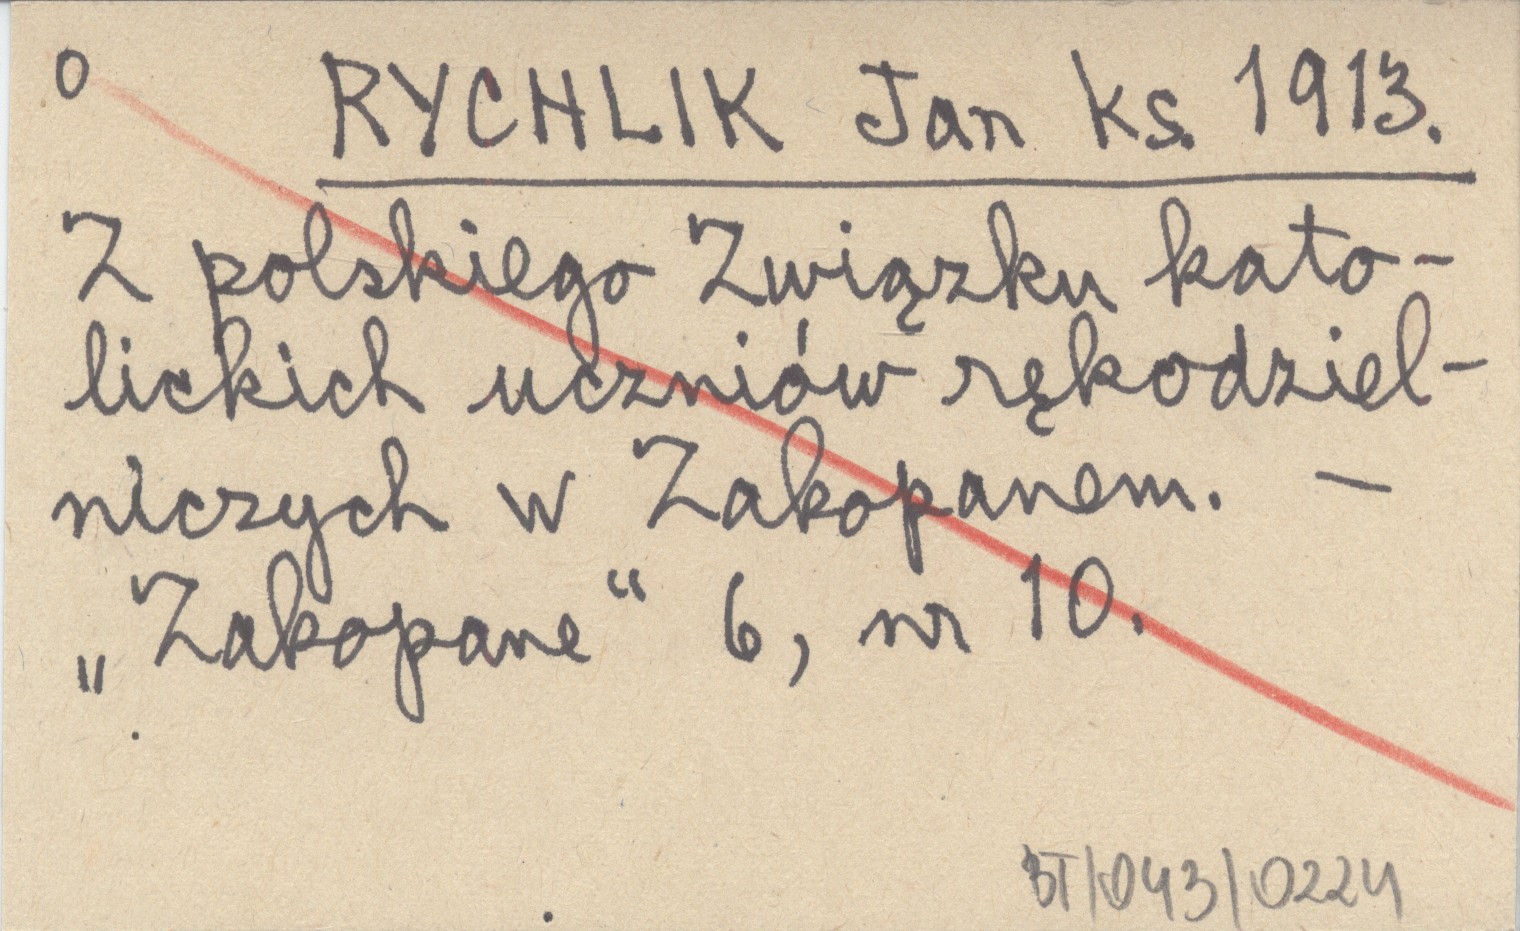 o RYCHLIK Jan ks. 1913.
Z polskiego Związku kato-
lickich uczniów rękodziel-
niczych w Zakopanem. —
„Zakopane“ 6, nr 10.
BT/043/0224